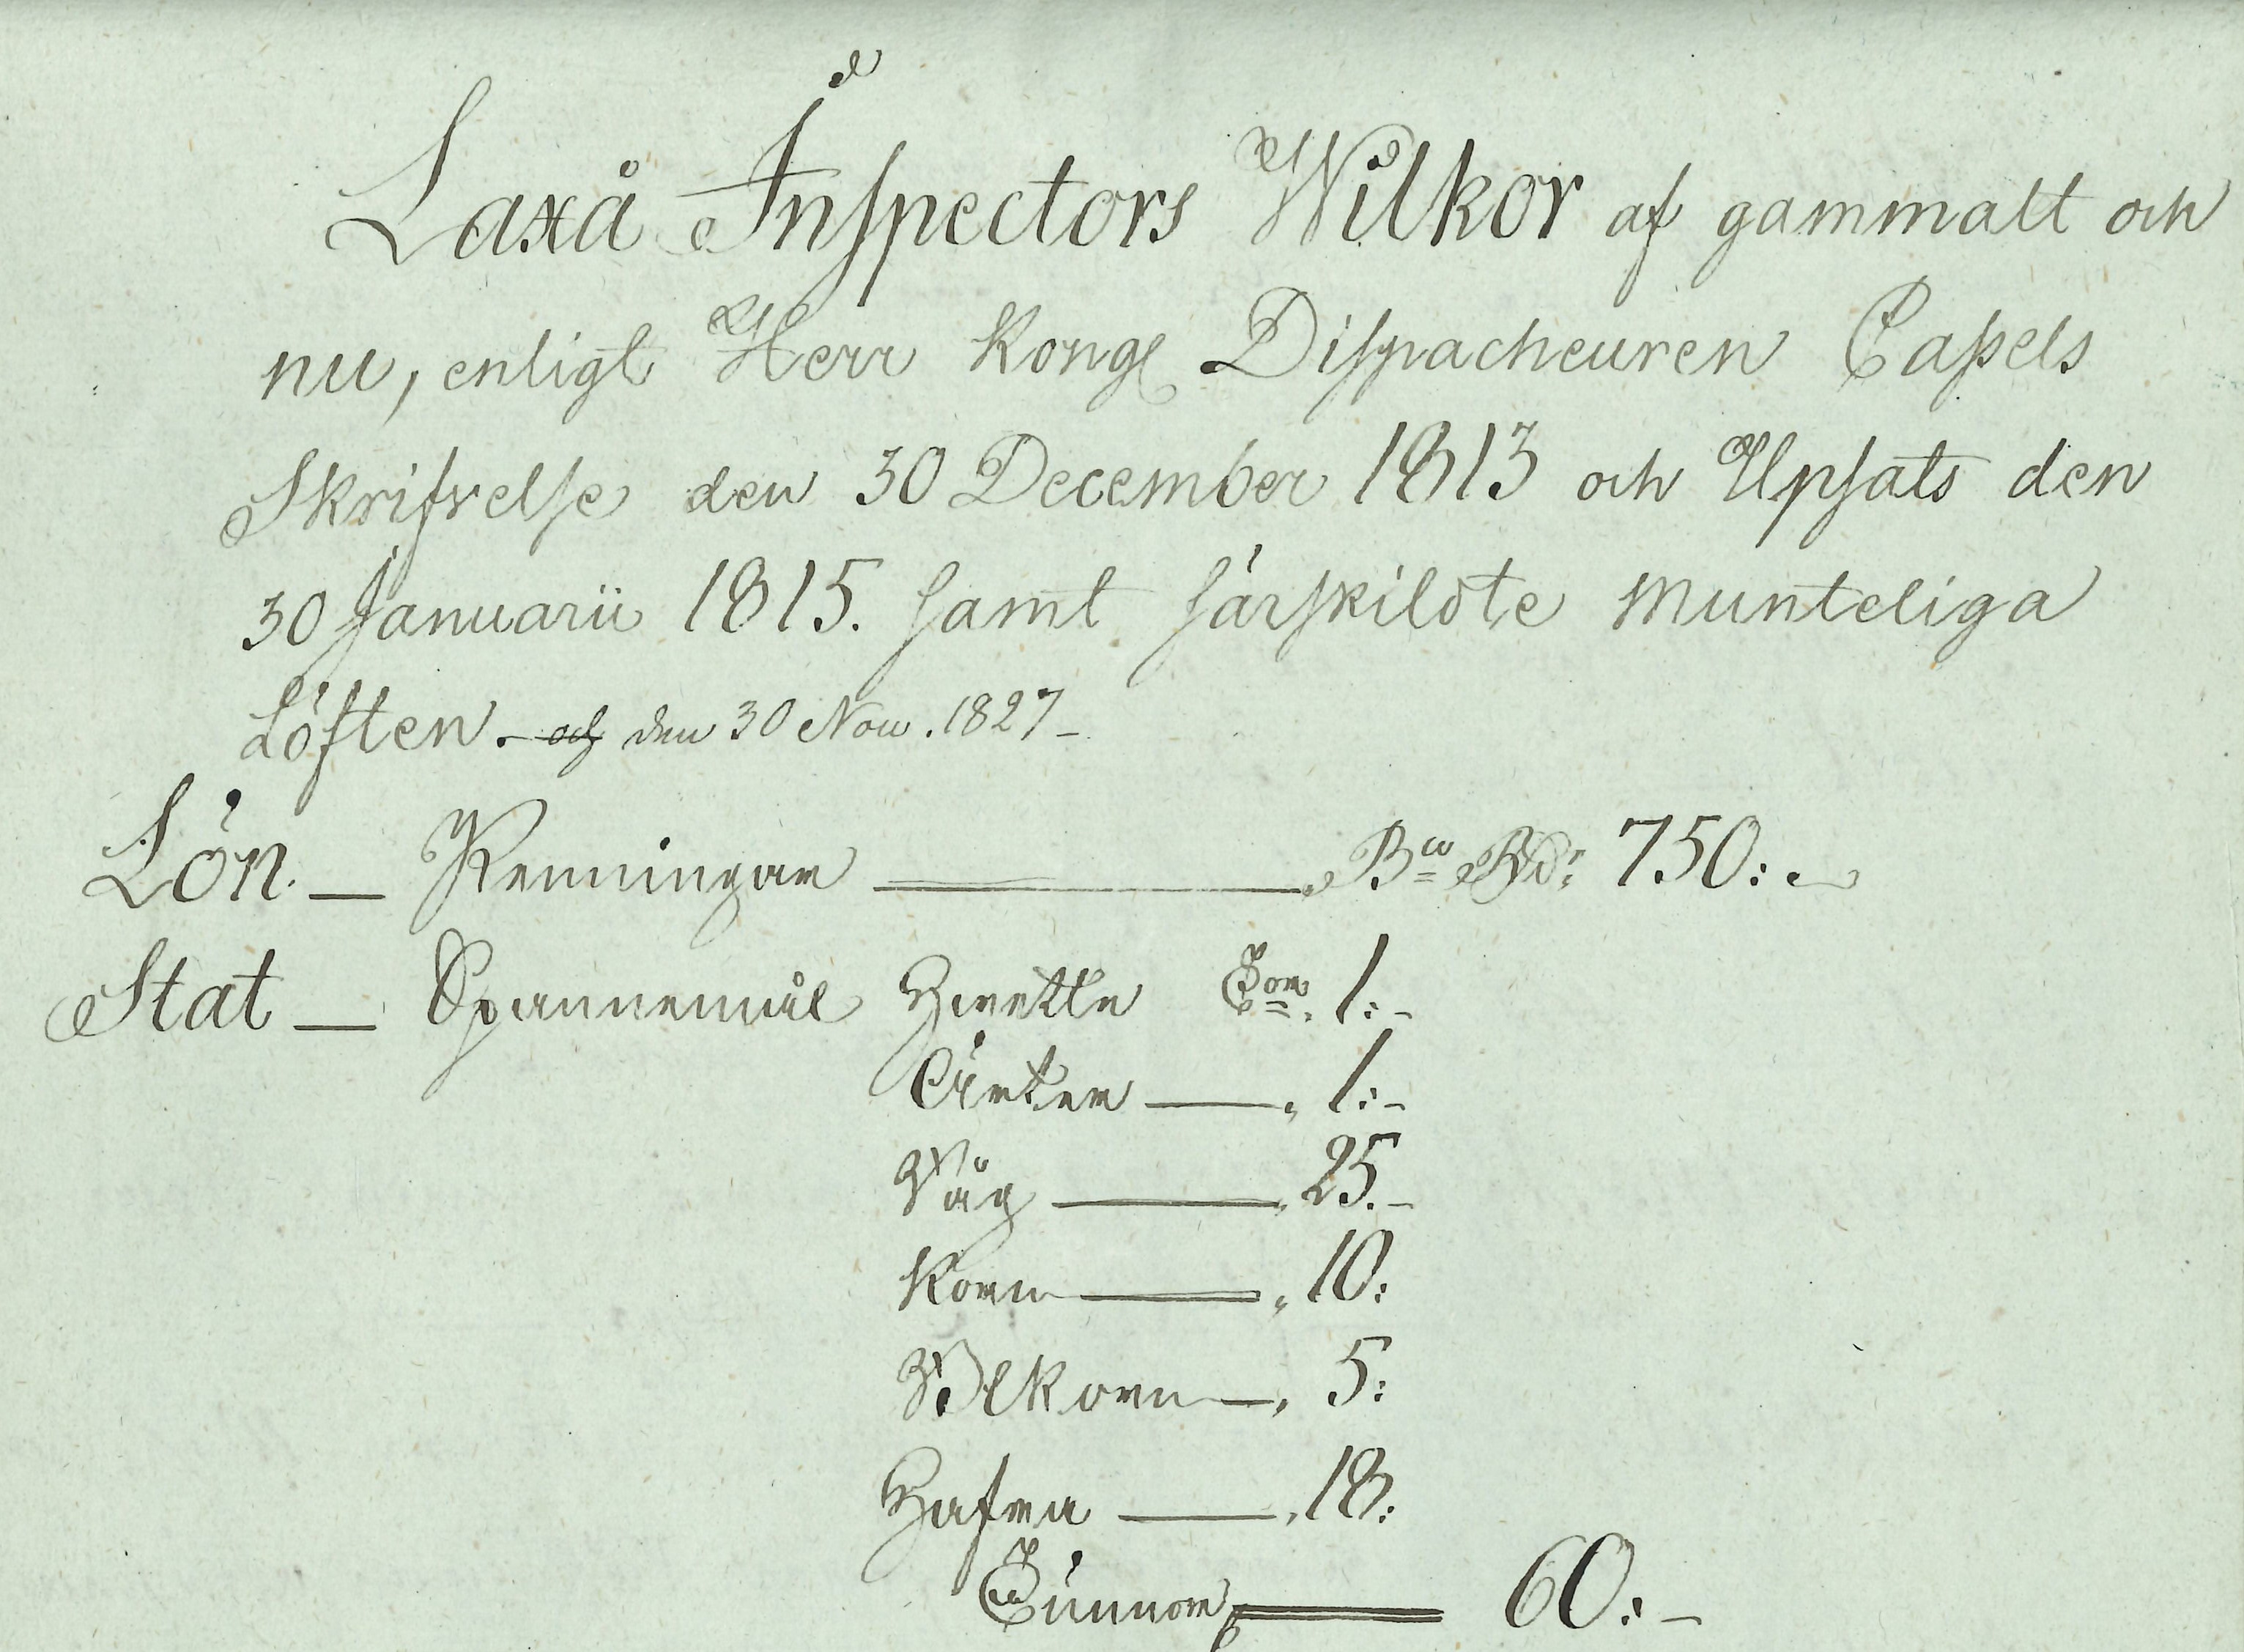 Laxå Inspectors Wilkor af gammalt och
nu, enligt Herr Kongl Dispacheuren Cassels
Skrifvelse den 30 December 1813 och Upsats den
30 Januarii 1815. samt särskildte Munteliga
Löften. och den 30 Nov. 1827 -
Lön. - Penningar - Bco Rdr 750: -
Stat - Spannemål Hvette Tnr. 1:-
Ärter - " 1:-
Råg - " 25.-
Korn - " 10:
Blkorn - " 5:
Hafra - " 18:
Tunnor - 60:-